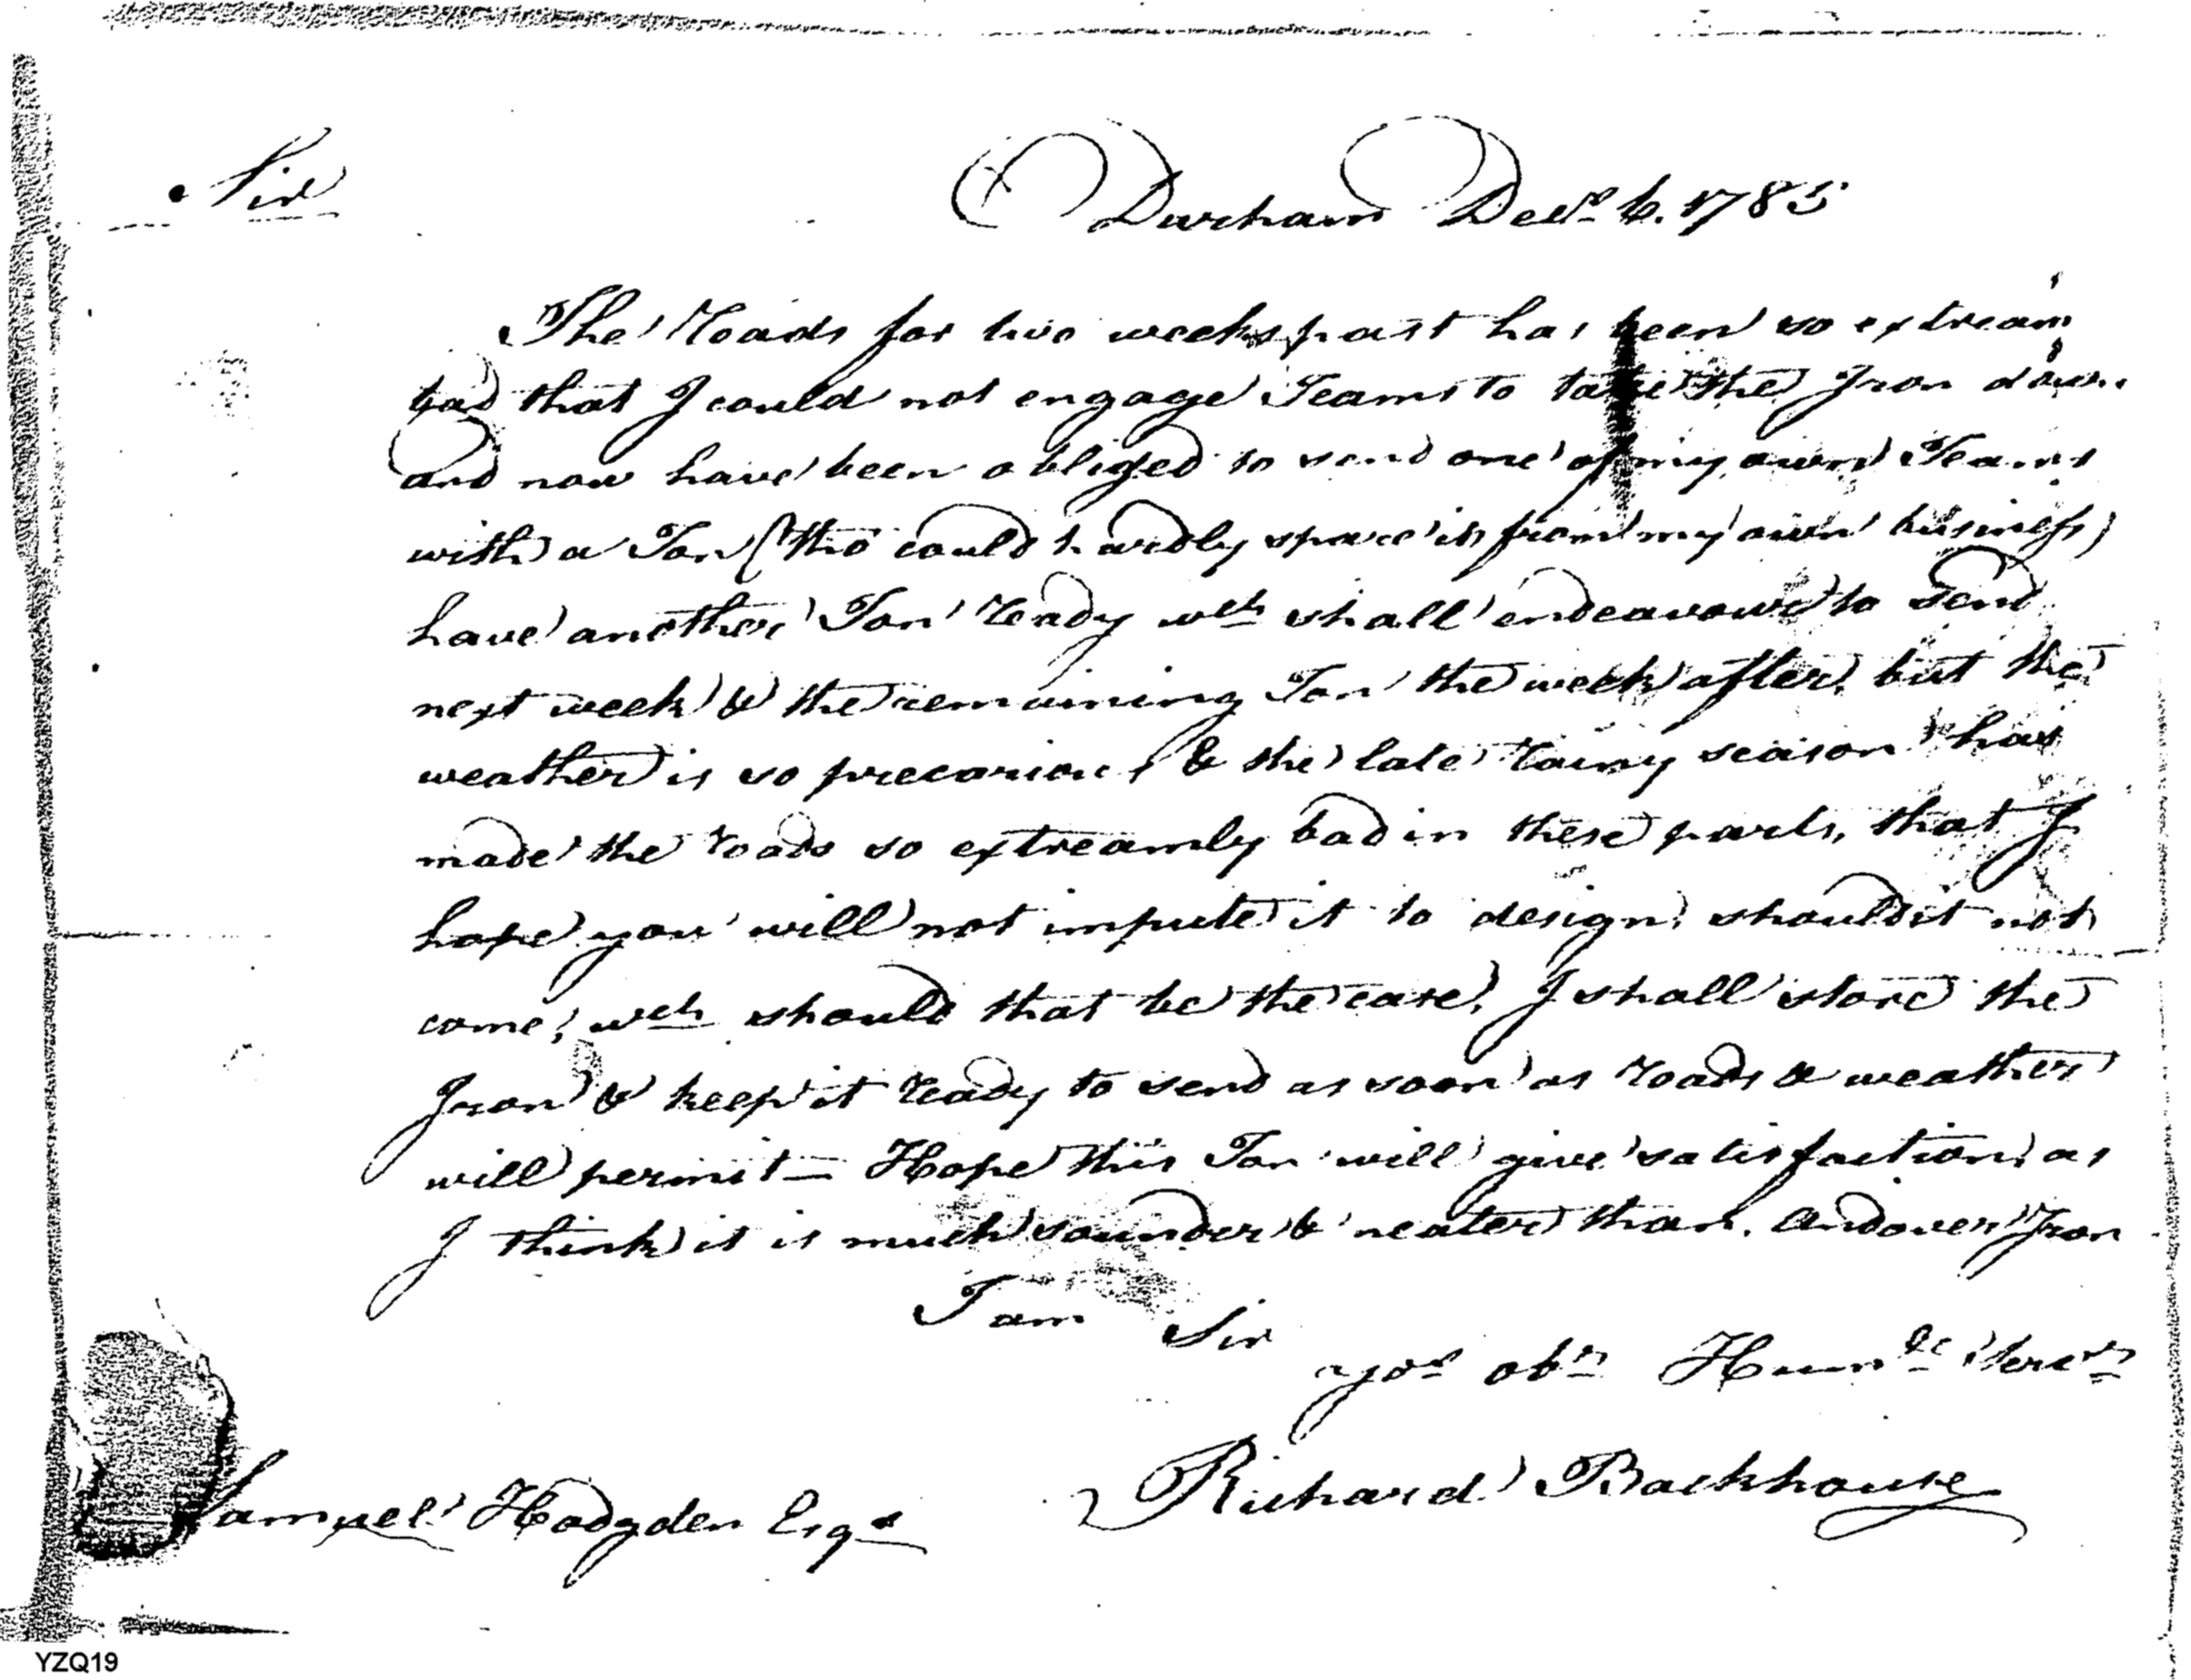 Sir
Durham Decr. 6. 1785
The Roads for two weeks past has been so extream
bad that I could not engage Teams to take the Iron down
and now have been obliged to send one of my own Teams
with a Ton (tho' could hardly spare it from my own business)
have another Ton ready wch shall endeavour to send
next week & the remaining Ton the week after, but the
weather is so precarious & the late rainy season has
made the roads so extreamly bad in these parts, that I
hope you will not impute it to design, should it not
come, wch should that be the case, I shall store the
Iron & keep it ready to send as soon as roads & weather
will permit — Hope this Ton will give satisfaction, as
I think it is much sounder & neater than Andover Iron
I am Sir
yor obt Humble Servt
Richard Backhouse
Samuel Hodgden Esqr
YZQ19